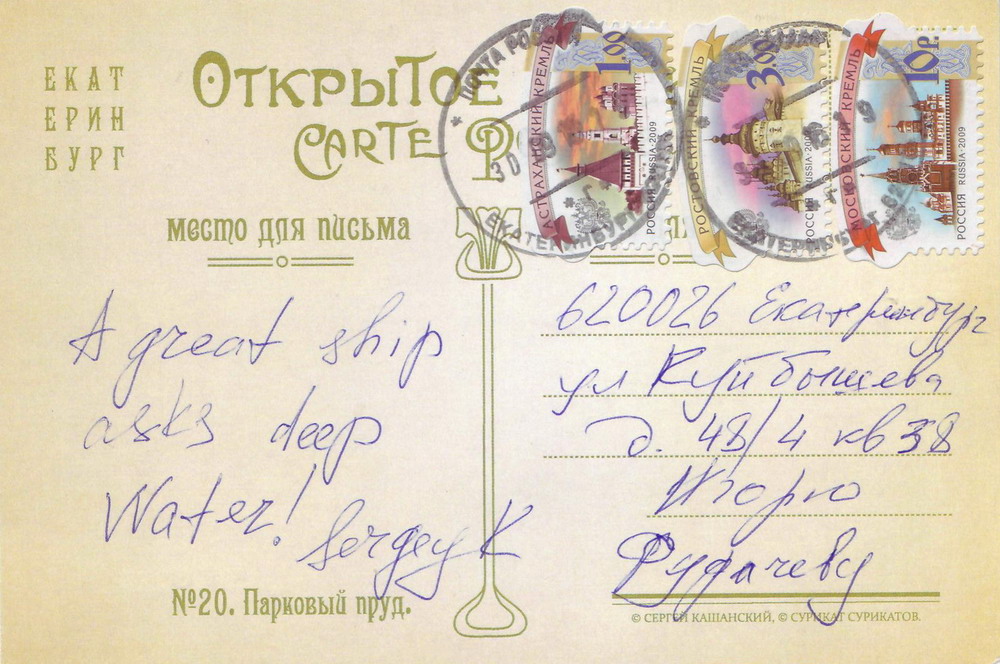 ЕКАТ
ЕРИН
БУРГ
ОТКРЫТОЕ
CARTE
МЕСТО ДЛЯ ПИСЬМА
A great ship
asks deep
Water!
Sergey K
№20. Парковый пруд.
АСТРАХАНСКИЙ КРЕМЛЬ
1.00
РОССИЯ RUSSIA·2009
РОСТОВСКИЙ КРЕМЛЬ
3.00
РОССИЯ RUSSIA·2009
МОСКОВСКИЙ КРЕМЛЬ
10Р.
РОССИЯ RUSSIA·2009
ПОЧТА РОССИИ
ЕКАТЕРИНБУРГ
ЕКАТЕРИНБУРГ
620026 Екатеринбург
ул Куйбышева
д. 48/4 кв 38
Игорю
Рудачеву
© СЕРГЕЙ КАШАНСКИЙ, © СУРИКАТ СУРИКАТОВ.